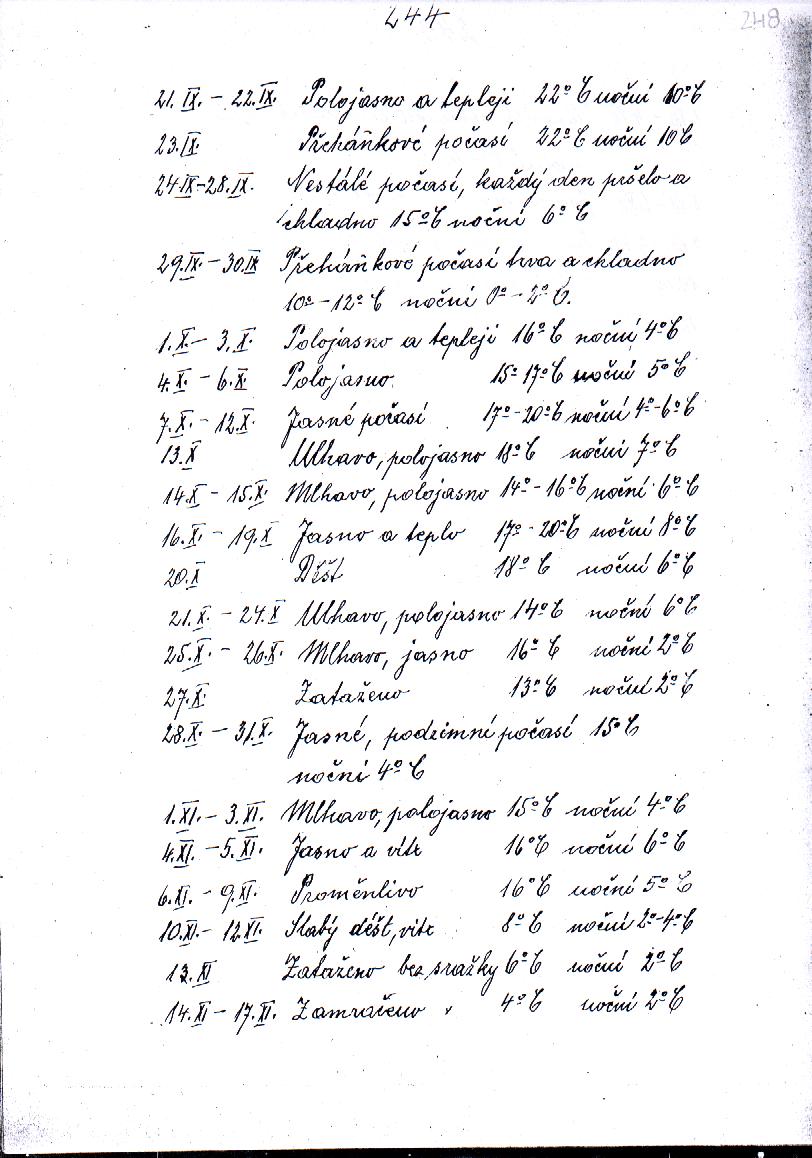 244
248
21. IX. - 22. IX. Polojasno a tepleji 22° C noční 10° C
23. IX. Přeháňkové počasí 22° C noční 10 C
24. IX - 28. IX. Nestálé počasí, každý den pršelo a
chladno 15° C noční 6° C
29. IX. - 30. IX Přeháňkové počasí trva a chladno
10° - 12° C noční 0° - 2° C.
1. X. - 3. X. Polojasno a tepleji 16° C noční 4° C
4. X - 6. X. Polojasno. 15° 17° C noční 5° C
7. X. - 12. X. Jasné počasí 17° - 20° C noční 4° - 6° C
13. X Mlhavo, polojasno 18° C noční 7° C
14. X - 15. X. Mlhavo, polojasno 14° - 16° C noční 6° C
16. X. - 19. X Jasno a teplo 17° - 20° C noční 8° C
20. X Déšt 18° C noční 6° C
21. X. - 24. X Mlhavo, polojasno 14° C noční 6° C
25. X. - 26. X. Mlhavo, jasno 16° C noční 2° C
27. X. Zataženo 13° C noční 2° C
28. X. - 31. X. Jasné, podzimní počasí 15° C
noční 4° C
1. XI. - 3. XI. Mlhavo, polojasno 15° C noční 4° C
4. XI. - 5. XI. Jasno a vítr 16° C noční 6° C
6. XI. - 9. XI. Proměnlivo 16° C noční 5° C
10. XI. - 12. XI. Slabý déšt, vítr 8° C noční 2° - 4° C
13. XI Zataženo bez srážky 6° C noční 2° C
14. XI - 17. XI. Zamračeno 4° C noční 2° C